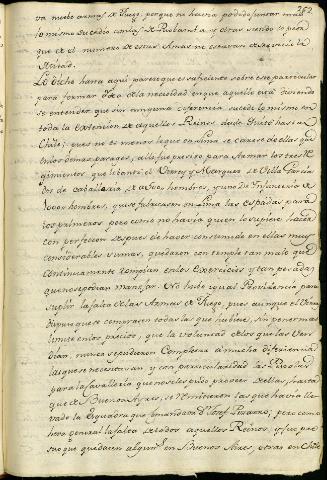 262
va nuebo armas de Fuego, porque no havia podido juntar mas
lo mismo sucedio con las de Riobamba, y otras siendo lo peor
que de el numero de estas Armas ne estavan de serville la
Mitad.
Lo dicho hasta aqui parece que es suficiente sobre este particular
para formar idea de la necesidad en que aquello está deviendo
se entender que sin ninguna diferencia sucede lo mismo en
toda la extencion de aquellos Reinos desde Quito hasta
Chile; pues no es menos lo que en Lima se carece de ellas que
en los demas parages, alli fue preciso para Armar los tres Re
gimientos, que lebantó el Virrey Marques de Villa Garcia
dos de caballeria de a hombres, y uno de Infanteria de
1000 hombres, que se fabricasen en Lima las espadas para
los primeros pero como no havia quien lo supiese hacer
con perfeccion despues de haver consumido en ellas muy
considerables sumas, quedaron con temple tan malo que
continuamente rompian en los Exercicios y tan pesadas
que no se podian manejar. No hubo igual Providencia para
suplir la falta de las Armas de Fuego, pues aunque el Virrey
dispuso que se comprasen todas las que hubiese, sin poner mas
limite en los precios, que la voluntad de los que las Ven
dian, nunca se pudieron Completar à mucha diferiencia
las que se necesitavan y con particularidad las Pistolas
para la Cavalleria que no se les pudo proveer de ellas, hasta
que de Buenos Ayres, se remitieron las que havia lle
vado la Esquadra que mandava Dn. Josef Pizarro; pero como
hera general la falta de todos aquellos Reinos, y fue pre
ciso que quedasen algunas en Buenos Aires, otras en Chile